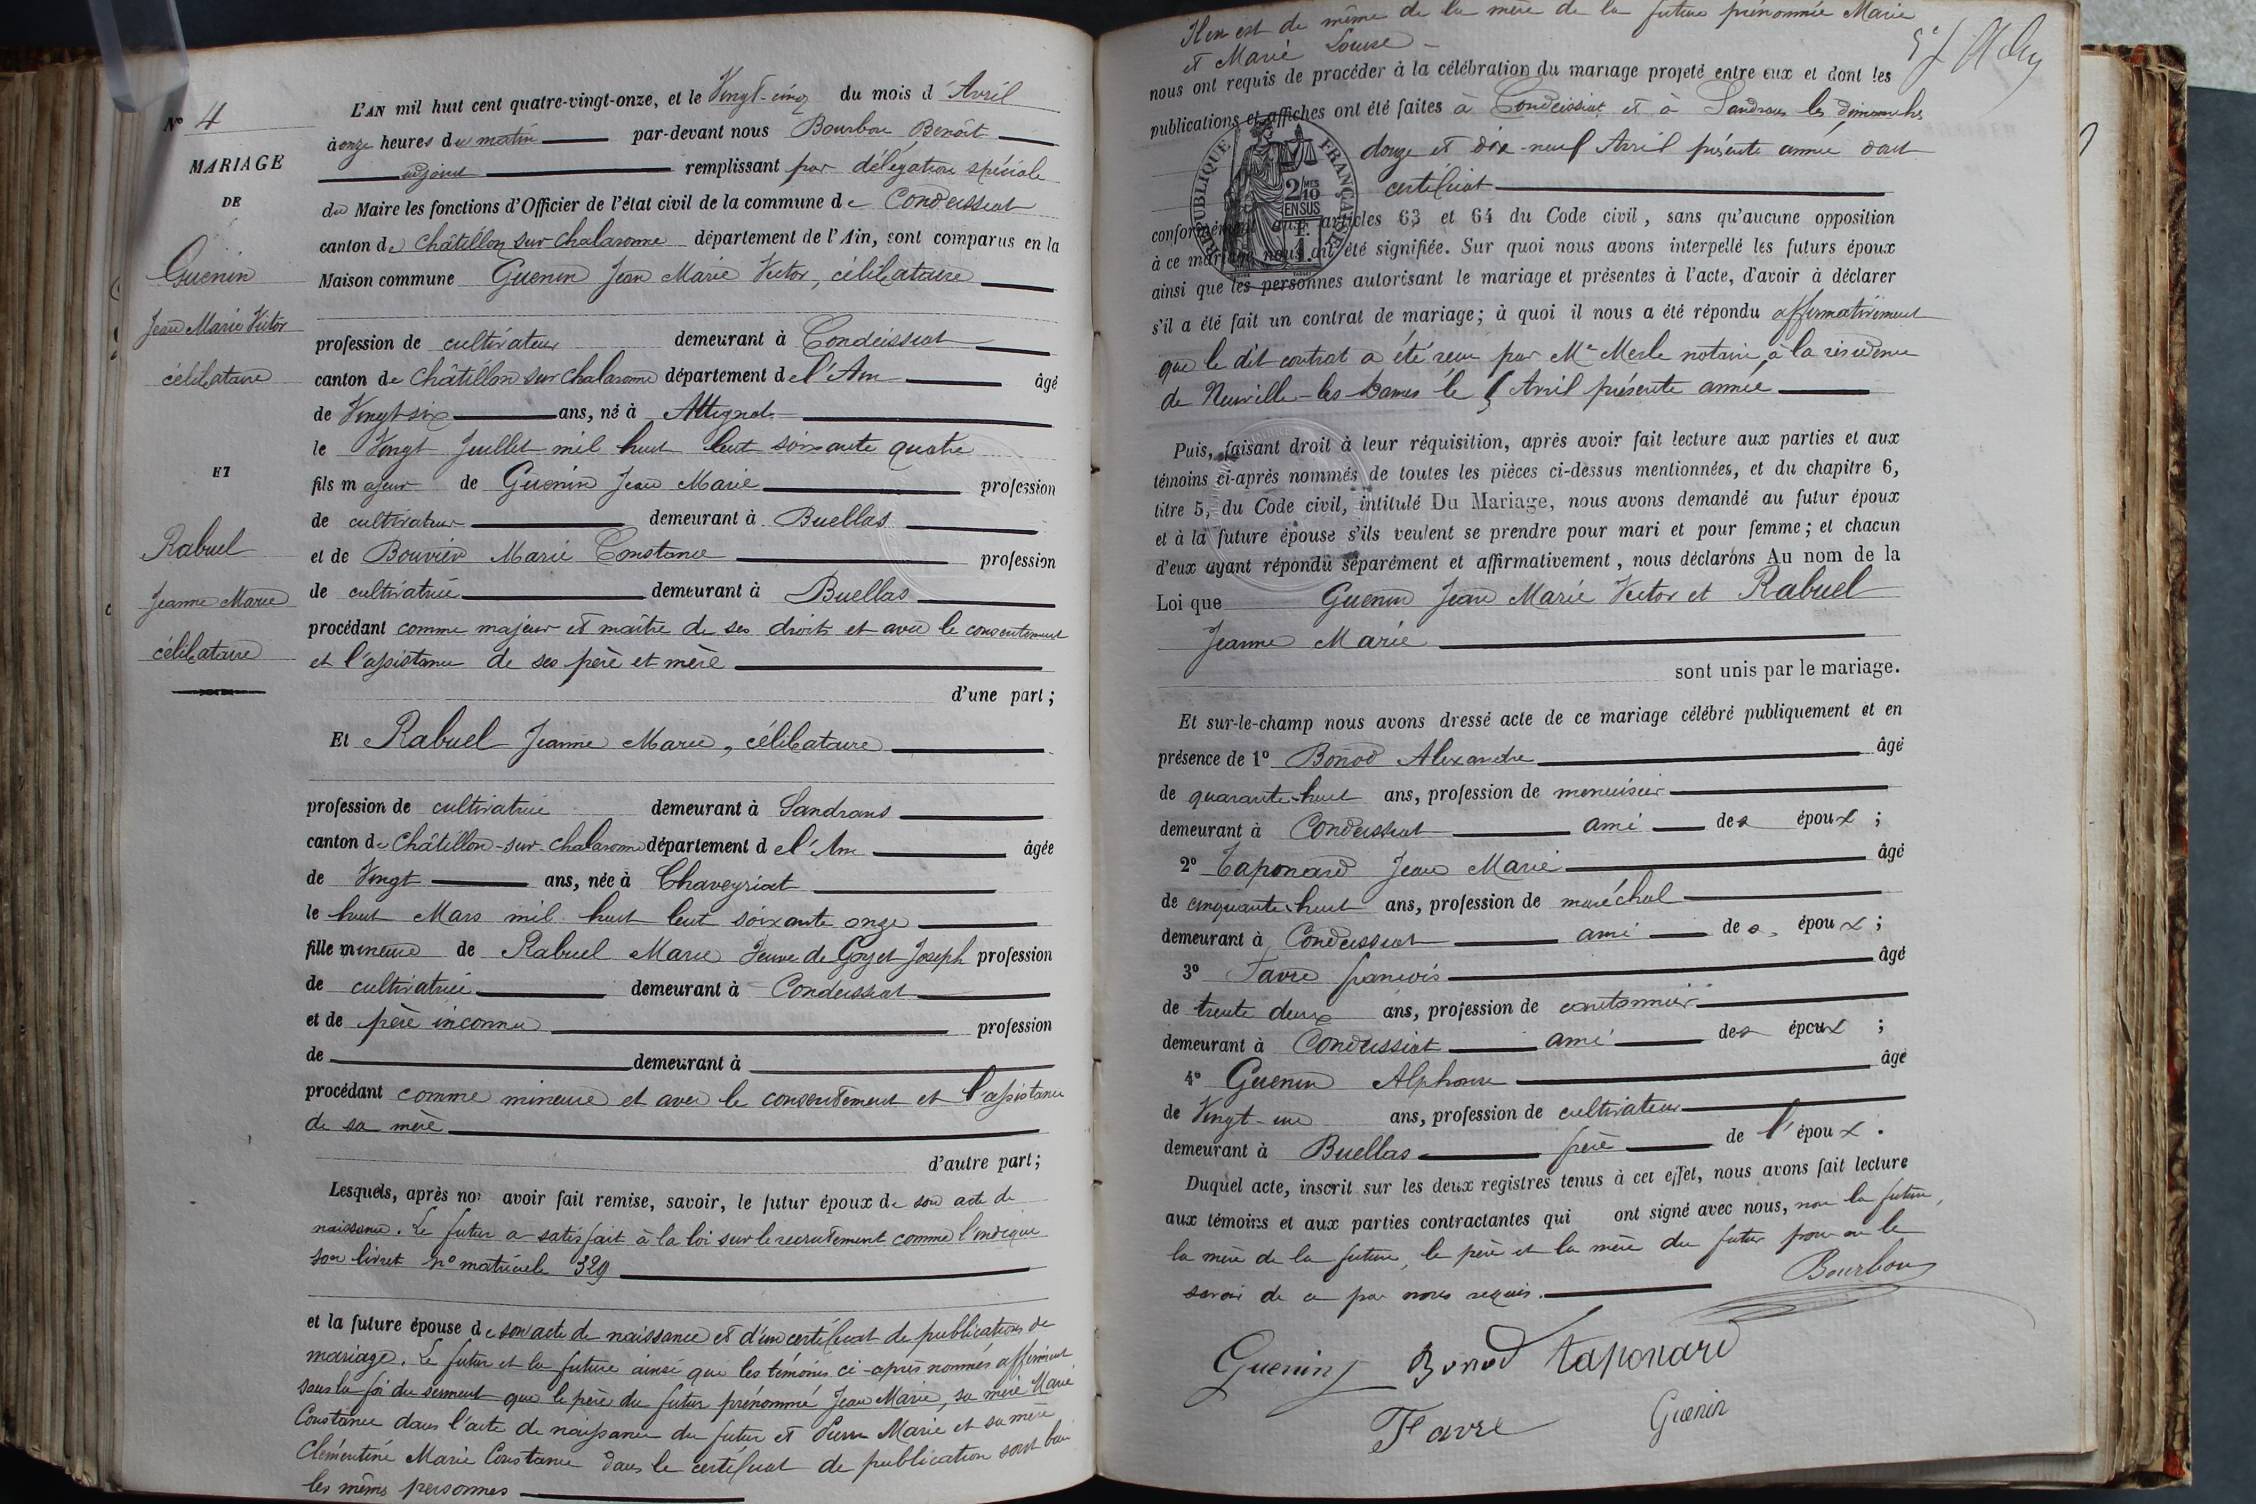 No 4
MARIAGE
DE
Guenin
Jean Marie Victor
célibataire
ET
Rabuel
Jeanne Marie
célibataire
L'AN mil huit cent quatre-vingt-onze, et le Vingt-cinq du mois d'Avril
à onze heures du matin par-devant nous Bourbon Benoît
adjoint remplissant par délégation spéciale
du Maire les fonctions d'Officier de l'état civil de la commune de Condeissiat
canton de Châtillon sur Chalaronne département de l'Ain, sont comparus en la
Maison commune Guenin Jean Marie Victor, célibataire
profession de cultivateur demeurant à Condeissiat
canton de Châtillon sur Chalaronne département de l'Ain âgé
de Vingt six ans, né à Attignat
le Vingt Juillet mil huit cent soixante quatre
fils majeur de Guenin Jean Marie profession
de cultivateur demeurant à Buellas
et de Bouvier Marie Constance profession
de cultivatrice demeurant à Buellas
procédant comme majeur et maître de ses droits et avec le consentement
et l'assistance de ses père et mère
d'une part;
Et Rabuel Jeanne Marie, célibataire
profession de cultivatrice demeurant à Sandrans
canton de Châtillon-sur-Chalaronne département de l'Ain âgée
de Vingt ans, née à Chaveyriat
le huit Mars mil huit cent soixante onze
fille mineure de Rabuel Marie Veuve de Goyet Joseph profession
de cultivatrice demeurant à Condeissiat
et de père inconnu profession
de demeurant à
procédant comme mineure et avec le consentement et l'assistance
de sa mère
d'autre part;
Lesquels, après nous avoir fait remise, savoir, le futur époux de son acte de
naissance. Le futur a satisfait à la loi sur le recrutement comme l'indique
son livret no matricule 329
et la future épouse de son acte de naissance et d'un certificat de publications de
mariage. Le futur et la future ainsi que les témoins ci-après nommés affirment
sous la foi du serment que le père du futur prénommé Jean Marie, sa mère Marie
Constance dans l'acte de naissance du futur et Pierre Marie et sa mère
Clémentine Marie Constance dans le certificat de publication sont bien
les mêmes personnes
Il en est de même de la mère de la future prénommée Marie
et Marie Louise
nous ont requis de procéder à la célébration du mariage projeté entre eux et dont les
publications et affiches ont été faites à Condeissiat et à Sandrans les dimanches
douze et dix-neuf Avril présente année dont
certificat
RÉPUBLIQUE FRANÇAISE
2/10 MES
EN SUS
1 F.
conformément aux articles 63 et 64 du Code civil, sans qu'aucune opposition
à ce mariage nous ait été signifiée. Sur quoi nous avons interpellé les futurs époux
ainsi que les personnes autorisant le mariage et présentes à l'acte, d'avoir à déclarer
s'il a été fait un contrat de mariage; à quoi il nous a été répondu affirmativement
que le dit contrat a été reçu par Me Merle notaire à la résidence
de Neuville-les-Dames le Avril présente année
Puis, faisant droit à leur réquisition, après avoir fait lecture aux parties et aux
témoins ci-après nommés de toutes les pièces ci-dessus mentionnées, et du chapitre 6,
titre 5, du Code civil, intitulé Du Mariage, nous avons demandé au futur époux
et à la future épouse s'ils veulent se prendre pour mari et pour femme; et chacun
d'eux ayant répondu séparément et affirmativement, nous déclarons Au nom de la
Loi que Guenin Jean Marie Victor et Rabuel
Jeanne Marie
sont unis par le mariage.
Et sur-le-champ nous avons dressé acte de ce mariage célébré publiquement et en
présence de 1o Bonod Alexandre âgé
de quarante-huit ans, profession de menuisier
demeurant à Condeissiat ami des époux;
2o Taponard Jean Marie âgé
de cinquante-huit ans, profession de maréchal
demeurant à Condeissiat ami des époux;
3o Favre françois âgé
de trente deux ans, profession de cantonnier
demeurant à Condeissiat ami des époux;
4o Guenin Alphonse âgé
de Vingt-un ans, profession de cultivateur
demeurant à Buellas frère de l'époux.
Duquel acte, inscrit sur les deux registres tenus à cet effet, nous avons fait lecture
aux témoins et aux parties contractantes qui ont signé avec nous, non la future,
la mère de la future, le père et la mère du futur pour ne le
savoir de ce par nous requis.
Bourbon
Guenin J Bonod taponard
Favre Guenin